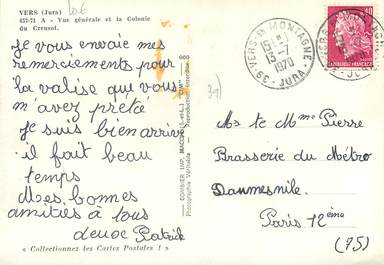 VERS (Jura)
457-71 A - Vue générale et la Colonie
du Creusot.
Je vous envoie mes
remerciements pour
la valise que vous
m'avez prêté
Je suis bien arrivé
il fait beau
temps
Mes bonnes
amitiés à tous
Patrick
« Collectionnez les Cartes Postales ! »
COMBIER IMP. MACON
39 VERS EN MONTAGNE
15 H
15-7
1970
JURA
40
39)
Mr et Mme Pierre
Brasserie du Métro
Daumesnile.
Paris 12ème
(75)